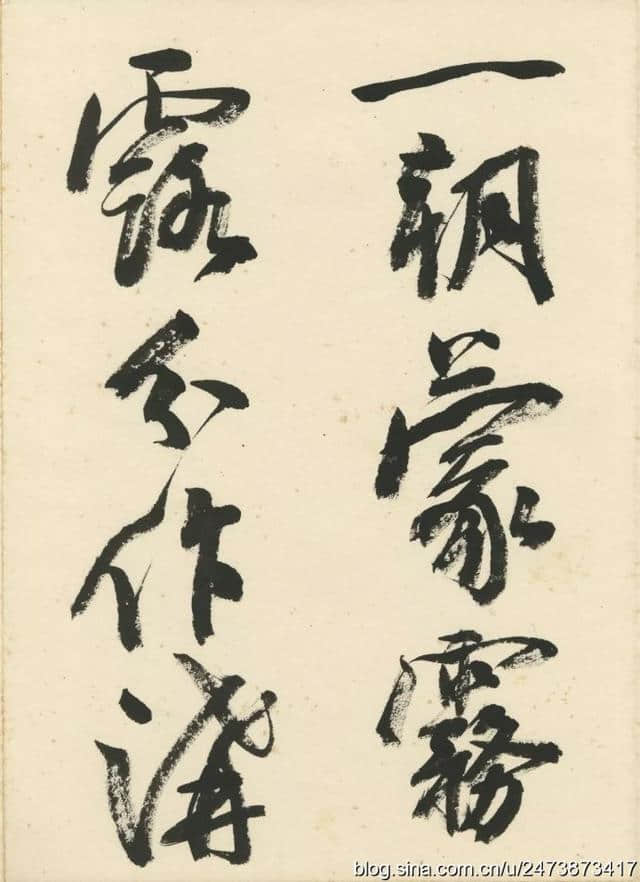 一朝蒙霧
露分作溝
blog.sina.com.cn/u/2473873417